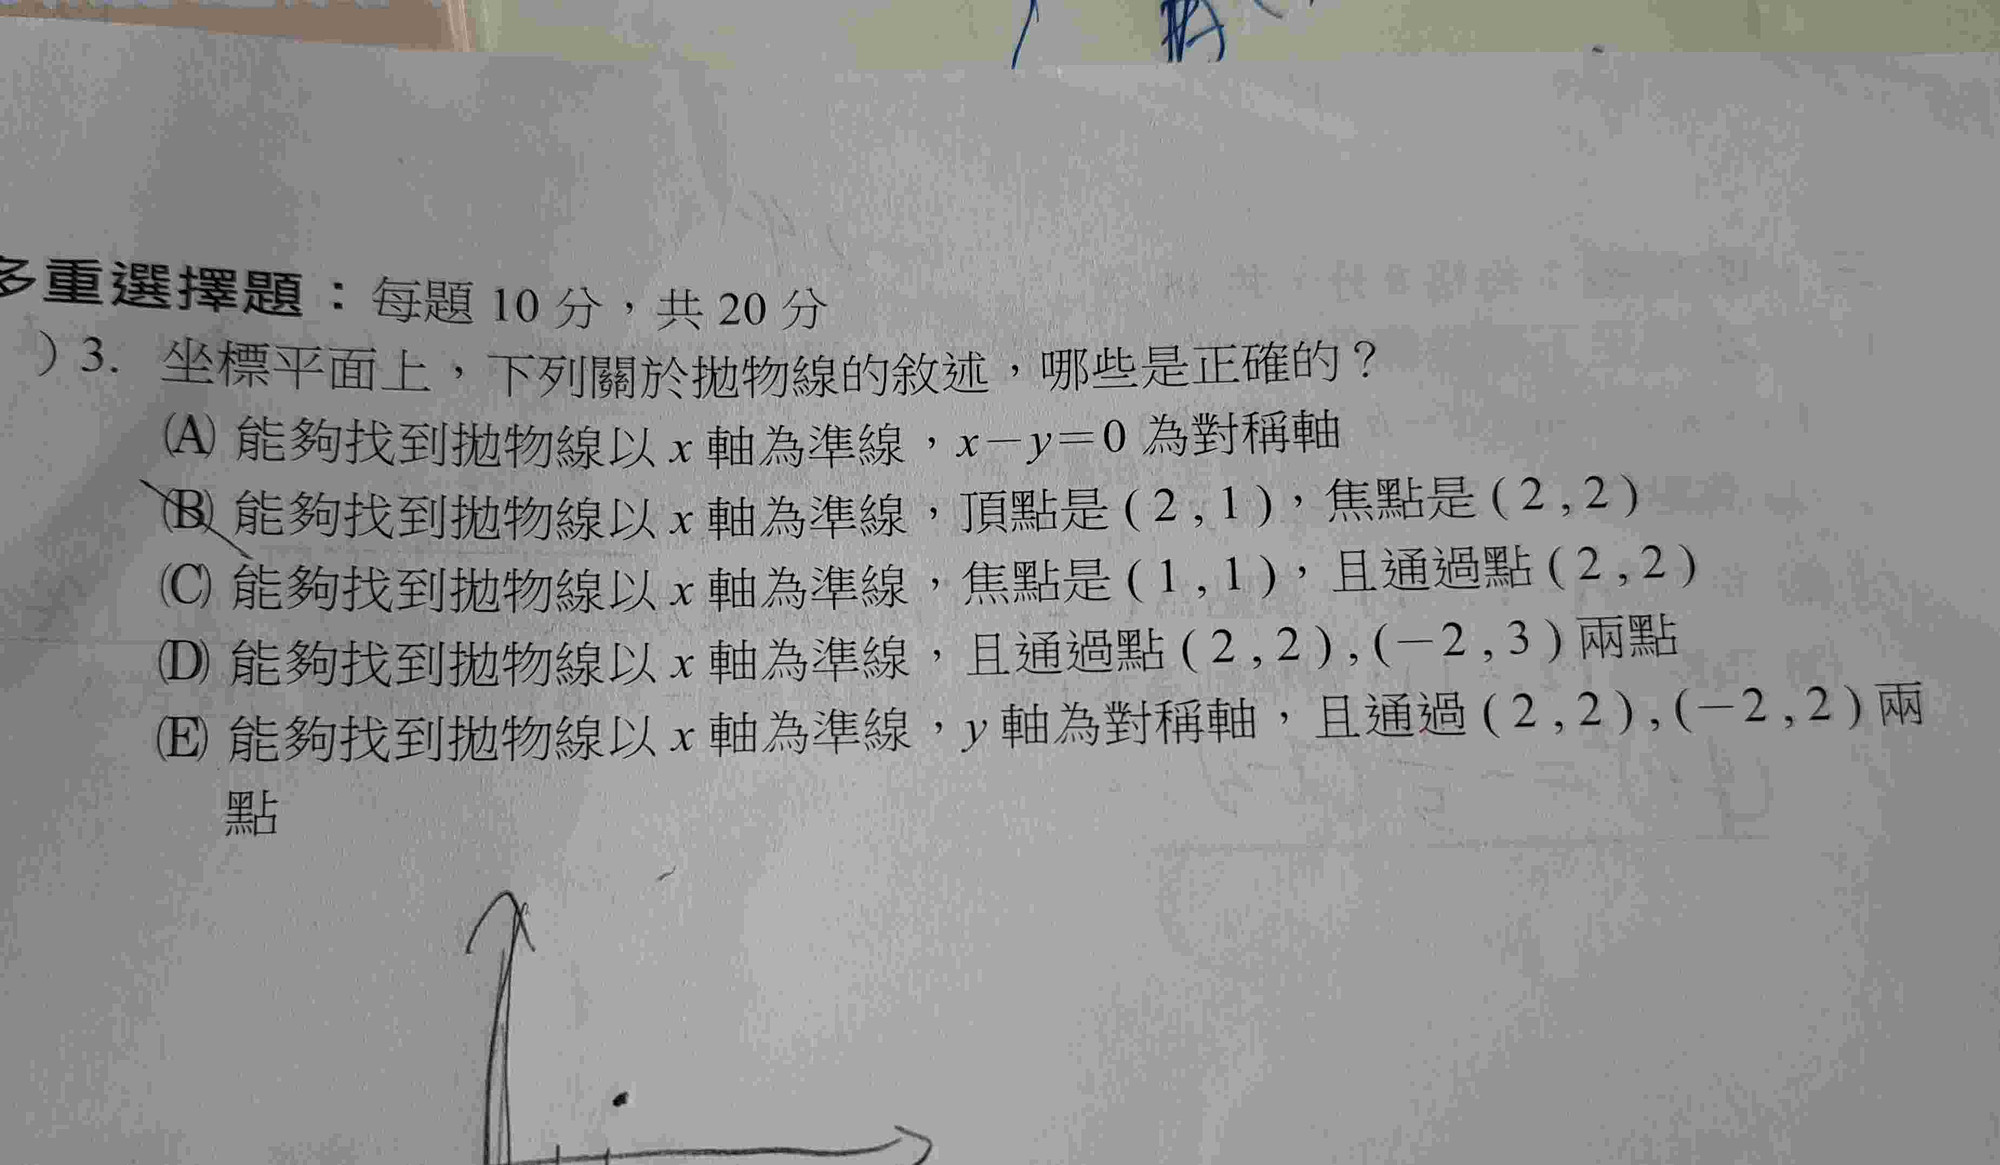 多重選擇題：每題 10 分，共 20 分
）3. 坐標平面上，下列關於拋物線的敘述，哪些是正確的？
(A) 能夠找到拋物線以 x 軸為準線，x－y＝0 為對稱軸
(B) 能夠找到拋物線以 x 軸為準線，頂點是 ( 2 , 1 )，焦點是 ( 2 , 2 )
(C) 能夠找到拋物線以 x 軸為準線，焦點是 ( 1 , 1 )，且通過點 ( 2 , 2 )
(D) 能夠找到拋物線以 x 軸為準線，且通過點 ( 2 , 2 ) , (－2 , 3 ) 兩點
(E) 能夠找到拋物線以 x 軸為準線，y 軸為對稱軸，且通過 ( 2 , 2 ) , (－2 , 2 ) 兩
點